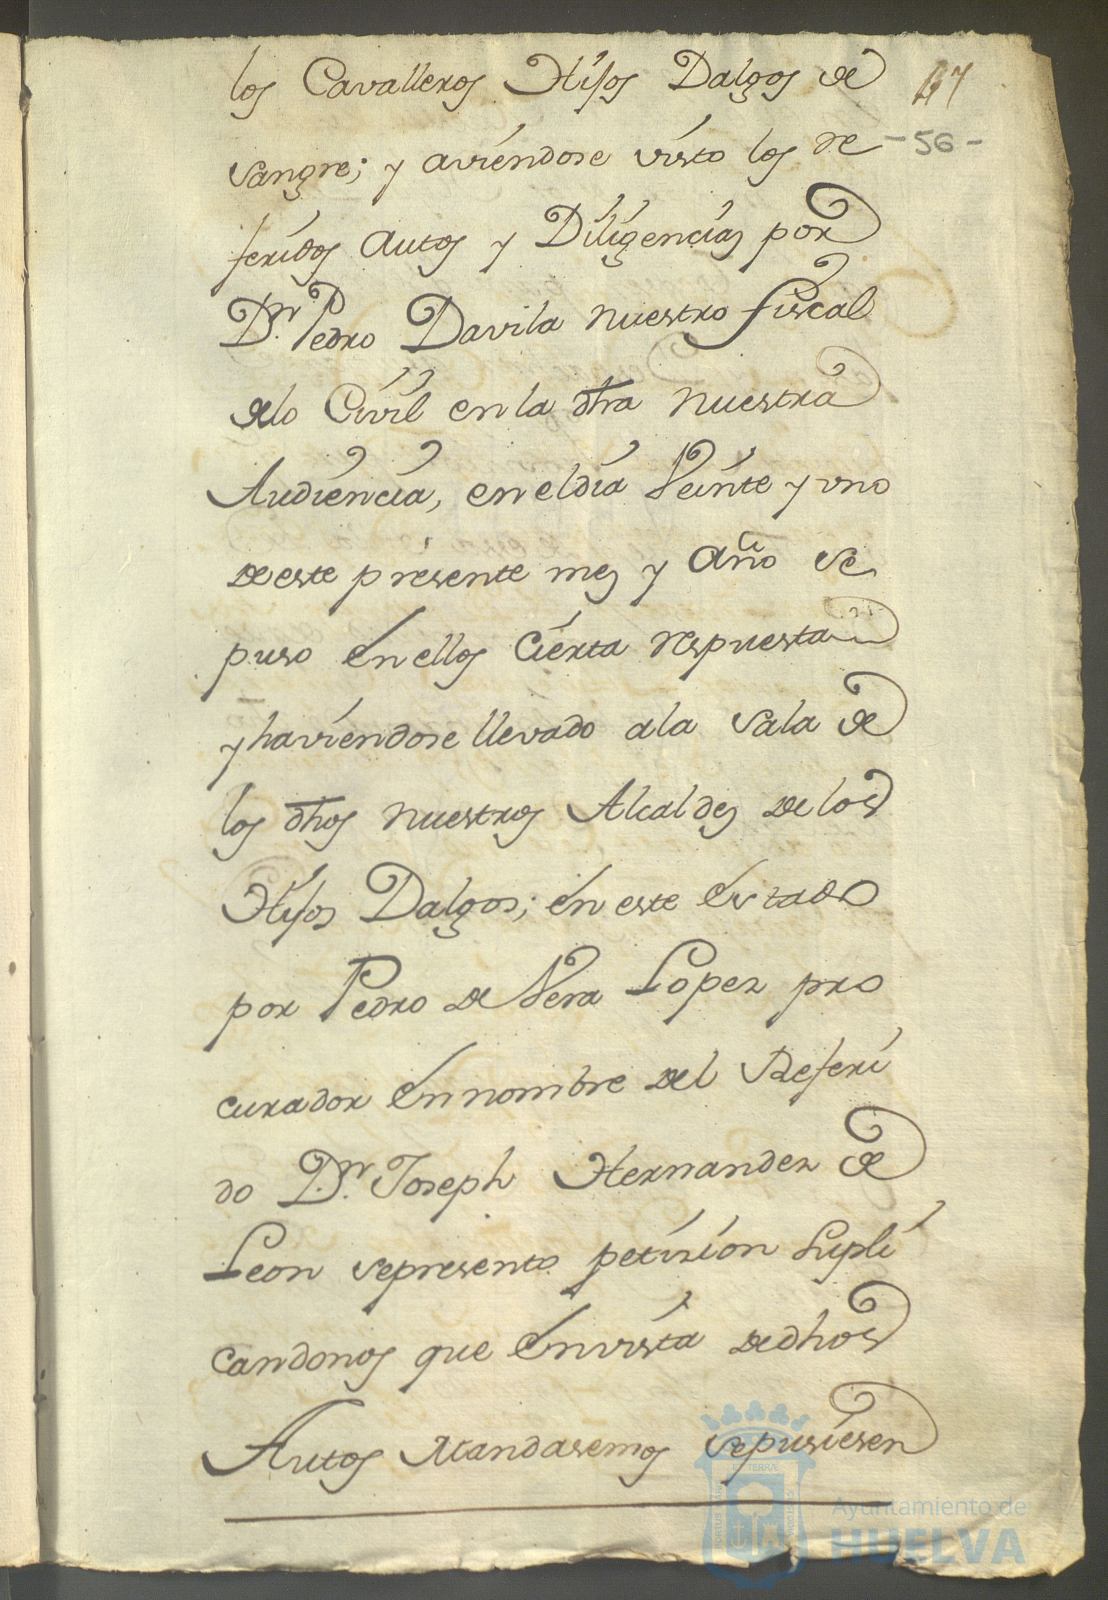 los Cavalleros Hijos Dalgos de
47
sangre; y aviendose visto los re
-56-
feridos autos y Diligencias por
Dn. Pedro Davila nuestro fiscal
delo Civil en la dha nuestra
Audiencia, en el dia Veinte y uno
de este presente mes y año se
puso en ellos cierta respuesta
y haviendose llevado a la Sala de
los dhos nuestros Alcaldes de los
Hijos Dalgos; en este estado
por Pedro de Vera Lopez pro
curador en nombre del Referi
do Dn. Joseph Hernandez de
Leon se presento petizion supli
candonos que en vista de dhos
Autos mandasemos se pusiesen
Ayuntamiento de
HUELVA